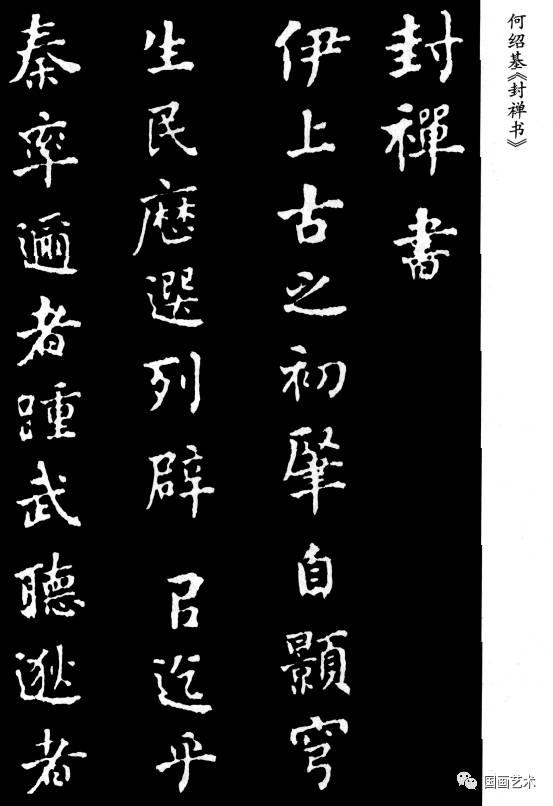 何绍基《封禅书》
封禪書
伊上古之初肇自顥穹
生民歷選列辟㠯迄乎
秦率邇者踵武聽逖者
国画艺术